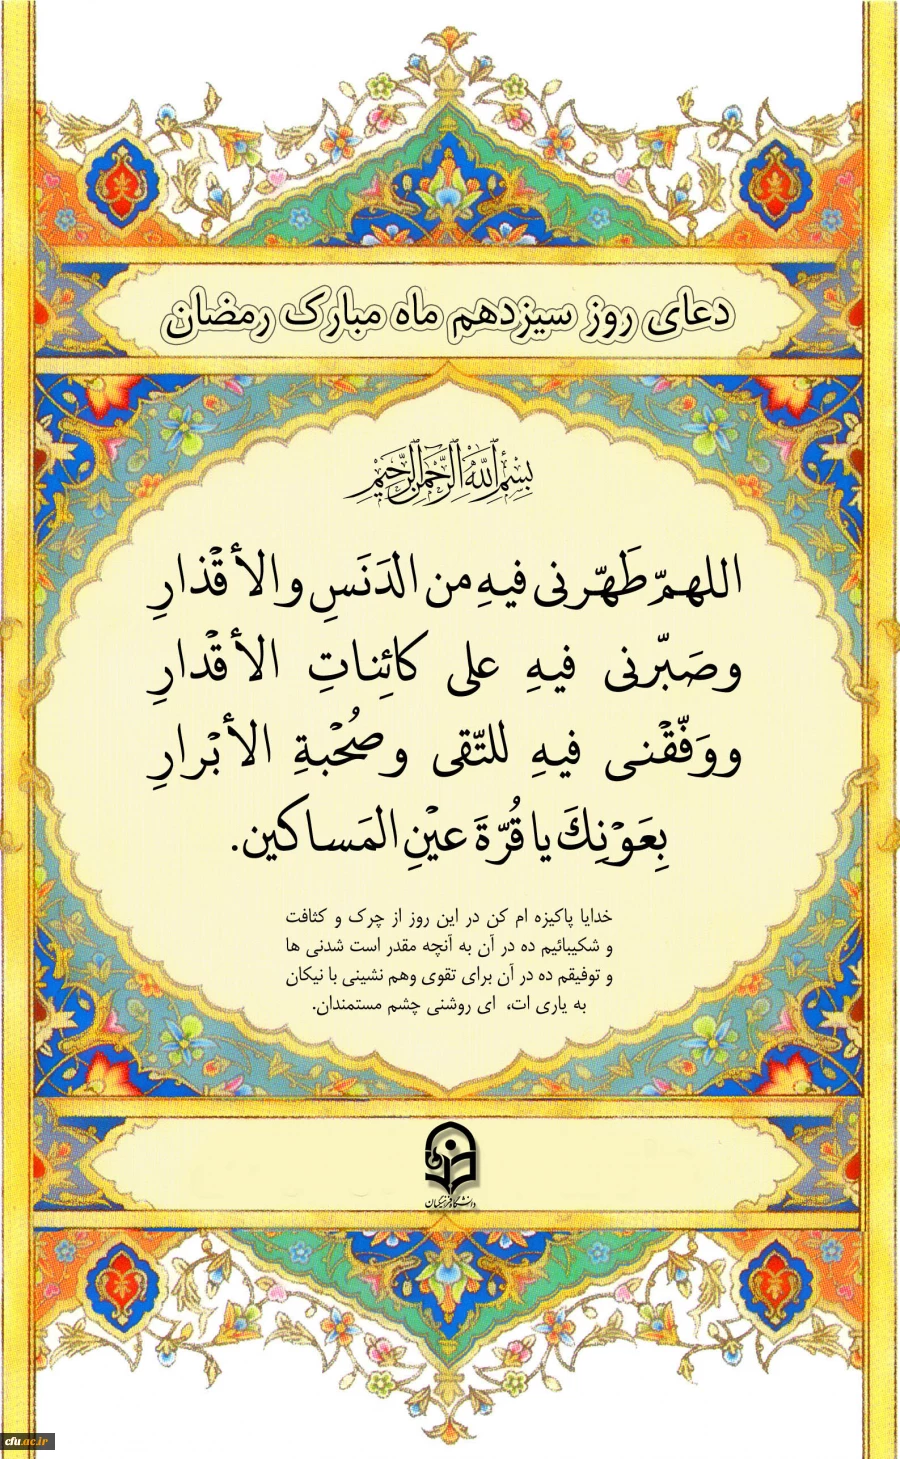 دعای روز سیزدهم ماه مبارک رمضان
بِسْمِ اللَّهِ الرَّحْمَنِ الرَّحِيمِ
اللهمّ طَهّرنی فیهِ من الدَنَسِ والأقْذارِ
وصَبّرنی فیهِ علی کائِناتِ الأقْدارِ
ووَفّقْنی فیهِ للتّقی وصُحْبةِ الأبْرارِ
بِعَوْنِكَ یا قُرّةَ عیْنِ المَساکین.
خدایا پاکیزه ام کن در این روز از چرک و کثافت
و شکیبائیم ده در آن به آنچه مقدر است شدنی ها
و توفیقم ده در آن برای تقوی وهم نشینی با نیکان
به یاری ات، ای روشنی چشم مستمندان.
دانشگاه فرهنگیان
cfu.ac.ir